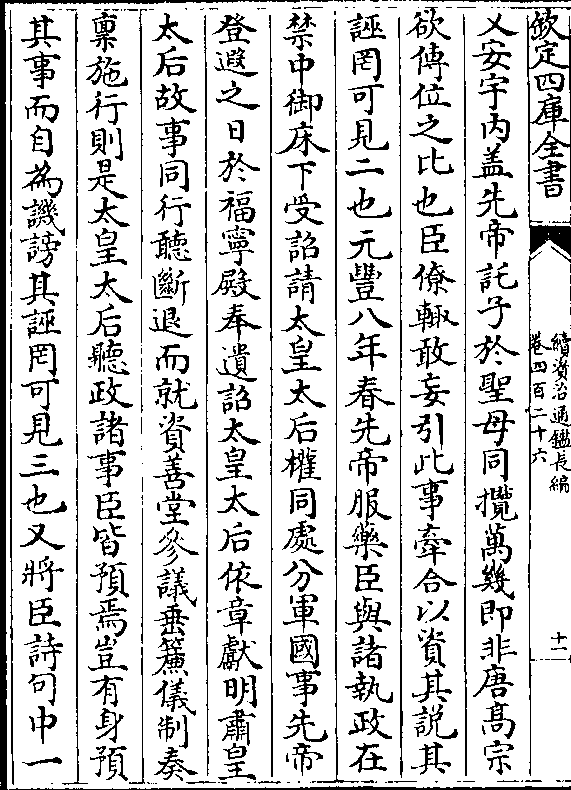 欽定四庫全書
續資治通鑑長編
卷四百二十六
十一
乂安宇内盖先帝託子於聖母同攬萬幾即非唐髙宗
欲傳位之比也臣僚輙敢妄引此事牽合以資其説其
誣罔可見二也元豐八年春先帝服藥臣與諸執政在
禁中御床下受詔請太皇太后權同處分軍國事先帝
登遐之日於福寧殿奉遺詔太皇太后依章獻明肅皇
太后故事同行聽斷退而就資善堂參議垂簾儀制奏
禀施行則是太皇太后聽政諸事臣皆預焉豈有身預
其事而自為譏謗其誣罔可見三也又將臣詩句中一